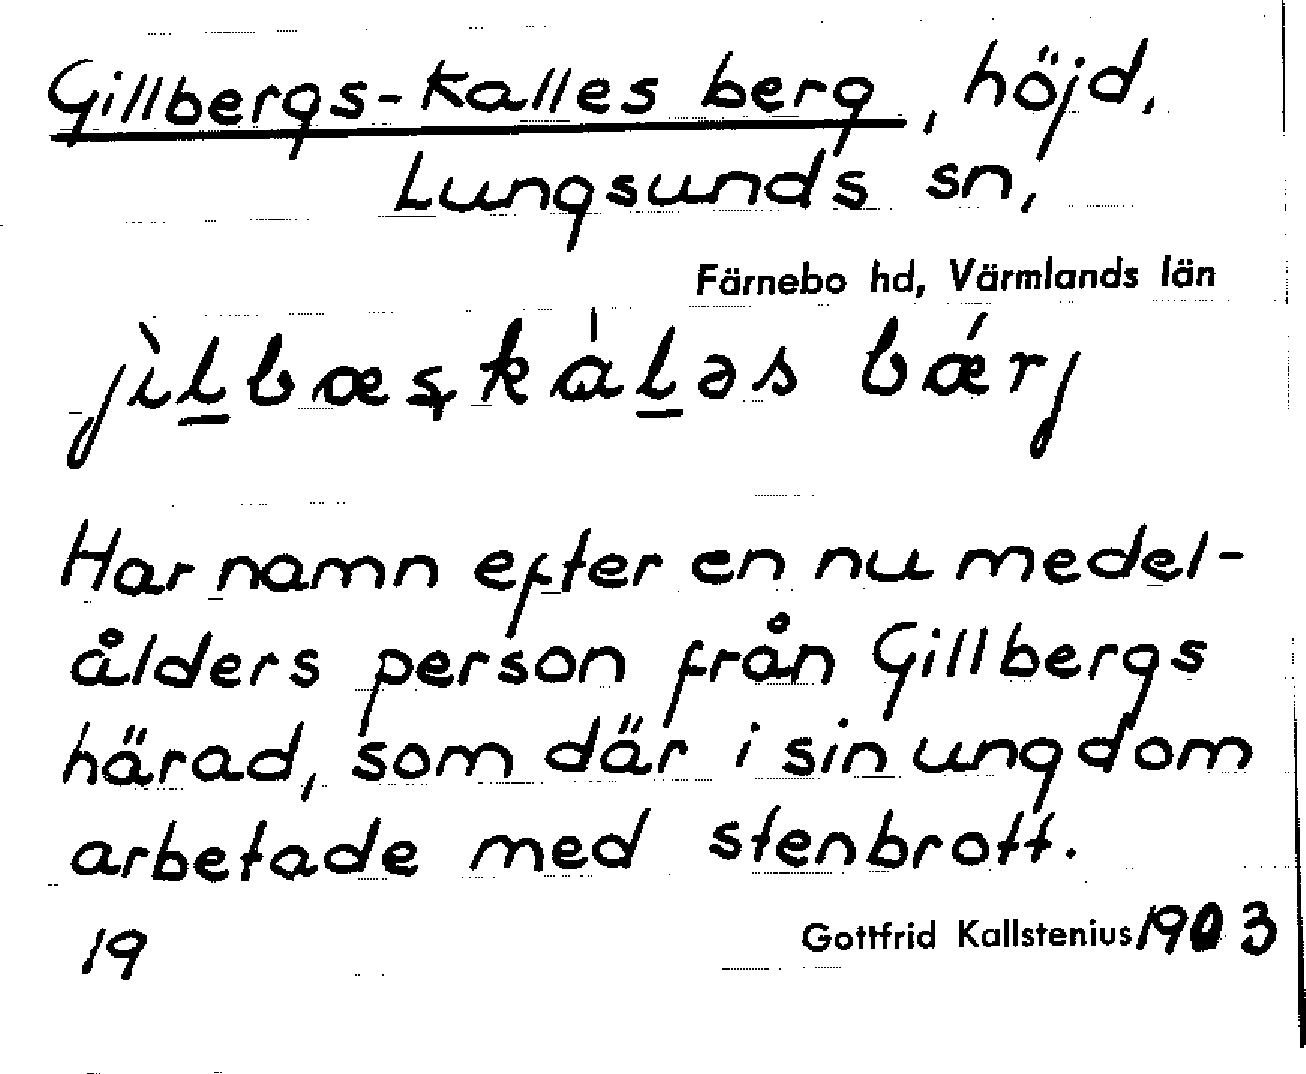 Gillbergs-Kalles berg, höjd.
Lungsunds sn,
Färnebo hd, Värmlands län
jìl̠bæʂkàl̠əs bǽrj
Har namn efter en nu medel-
ålders person från Gillbergs
härad, som där i sin ungdom
arbetade med stenbrott.
19 Gottfrid Kallstenius 1903